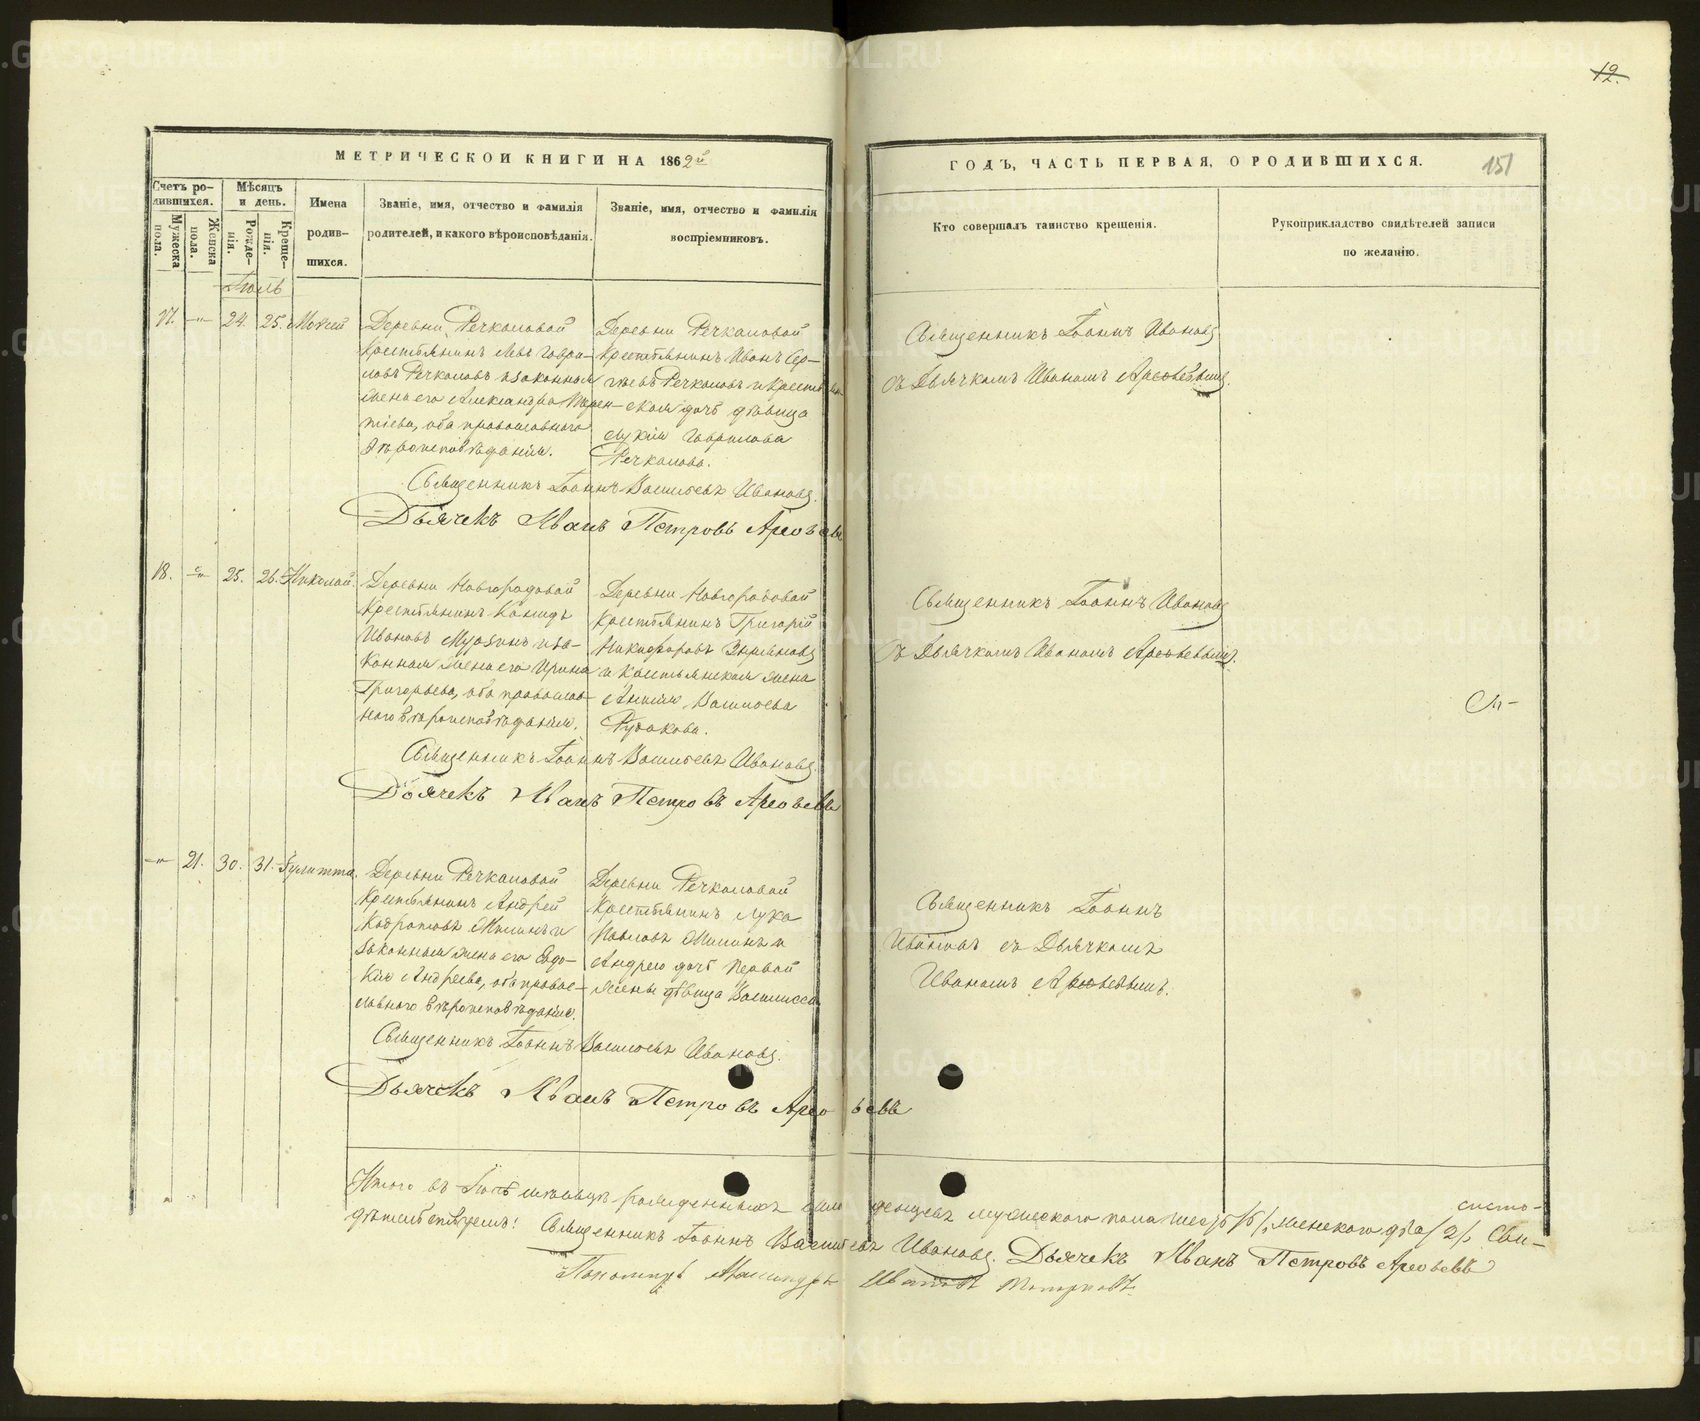 12.
МЕТРИЧЕСКОЙ КНИГИ НА 1862й
ГОДЪ, ЧАСТЬ ПЕРВАЯ, О РОДИВШИХСЯ.
151
Счетъ родившихся.
Мужеска пола.
Женска пола.
Мѣсяцъ и день.
Рожденія.
Крещенія.
Имена родившихся.
Званіе, имя, отчество и фамилія родителей, и какого вѣроисповѣданія.
Званіе, имя, отчество и фамилія воспріемниковъ.
Кто совершалъ таинство крещенія.
Рукоприкладство свидѣтелей записи по желанію.
Іюль
17. —"— 24. 25. Моисей
Деревни Речкаловой
Крестьянинъ Левъ Гаври-
ловъ Речкаловъ и законная
жена его Александра Терен-
тіева, оба православнаго
вѣроисповѣданія.
Деревни Речкаловой
Крестьянинъ Иванъ Сер-
гѣевъ Речкаловъ и крестьян-
ская дочь дѣвица
Лукія Гаврилова
Речкалова.
Священникъ Іоаннъ Ивановъ
съ Дьячкомъ Иваномъ Арефьевымъ.
Священникъ Іоаннъ Васильевъ Ивановъ.
Дьячекъ Иванъ Петровъ Арефьевъ
18. —"— 25. 26. Николай.
Деревни Новгородовой
Крестьянинъ
Ивановъ Мурзинъ и за-
конная жена его Ирина
Григорьева, оба православ-
наго вѣроисповѣданія.
Деревни Новгородовой
Крестьянинъ Григорій
Никифоровъ
и крестьянская жена
Васильева
Русакова.
Священникъ Іоаннъ Ивановъ
съ Дьячкомъ Иваномъ Арефьевымъ.
Священникъ Іоаннъ Васильевъ Ивановъ.
Дьячекъ Иванъ Петровъ Арефьевъ
—"— 21. 30. 31. Іулитта.
Деревни Речкаловой
Крестьянинъ Андрей
Милинъ и
законная жена его Евдо-
кія Андреева, оба правос-
лавного вѣроисповѣданія.
Деревни Речкаловой
Крестьянинъ Лука
Павловъ Милинъ и
Андрея дочь первой
жены дѣвица Василисса
Священникъ Іоаннъ
Ивановъ съ Дьячкомъ
Иваномъ Арефьевымъ.
Священникъ Іоаннъ Васильевъ Ивановъ.
Дьячекъ Иванъ Петровъ Арефьевъ
Итого въ Іюлѣ мѣсяцѣ рожденныхъ мужескаго пола шесть /6/, женскаго два /2/. Сви-
дѣтельствуемъ: Священникъ Іоаннъ Васильевъ Ивановъ. Дьячекъ Иванъ Петровъ Арефьевъ
Пономарь Александръ Ивановъ Топорковъ.
METRIKI.GASO-URAL.RU